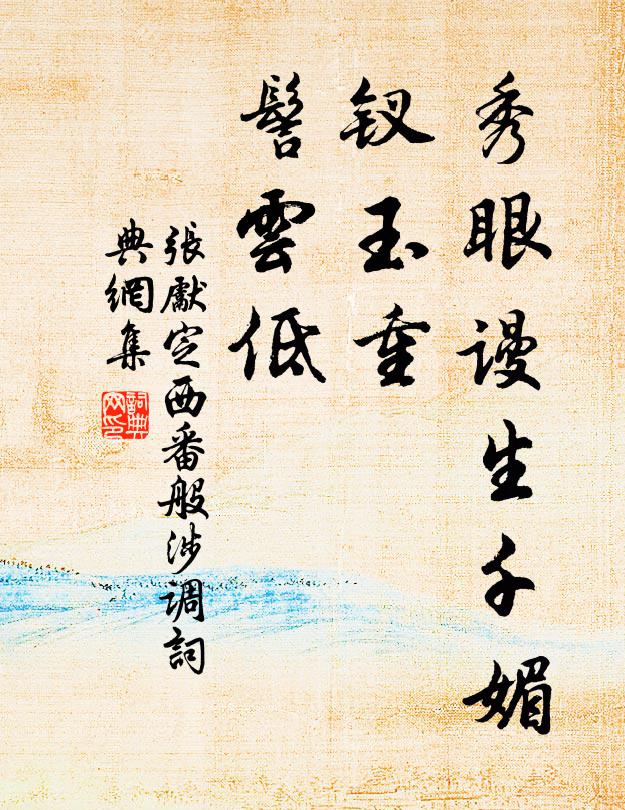 秀眼谩生千媚
钗玉重
髻雲低
張獻定西番般涉调詞
典網集
詞典
网印